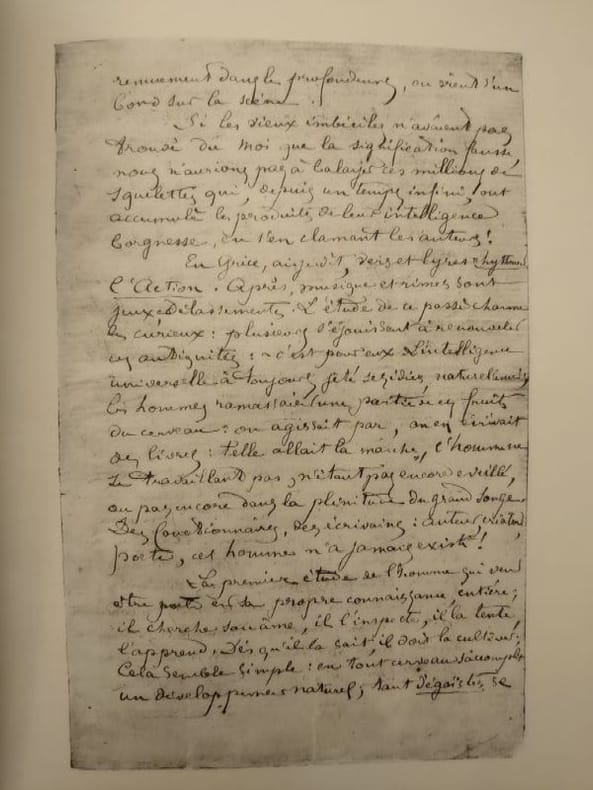 remuement dans les profondeurs, ou vient d'un
bond sur la scène.
Si les vieux imbéciles n'avaient pas
trouvé du Moi que la signification fausse,
nous n'aurions pas à balayer ces millions de
squelettes qui, depuis un temps infini, ont
accumulé les produits de leur intelligence
borgnesse, en s'en clamant les auteurs!
En Grèce, ai-je dit, vers et lyres rhythment
l'Action. Après, musique et rimes sont
jeux, délassements. L'étude de ce passé charme
les curieux: plusieurs s'éjouissent à renouveler
ces antiquités: – c'est pour eux. L'intelligence
universelle a toujours jeté ses idées, naturellement;
les hommes ramassaient une partie de ces fruits
du cerveau: on agissait par, on en écrivait
des livres: telle allait la marche, l'homme ne
se travaillant pas, n'étant pas encore éveillé,
ou pas encore dans la plénitude du grand songe.
Des fonctionnaires, des écrivains: auteur, créateur,
poète, cet homme n'a jamais existé!
La première étude de l'homme qui veut
être poète est sa propre connaissance, entière;
il cherche son âme, il l'inspecte, il la tente,
l'apprend. Dès qu'il la sait, il doit la cultiver;
Cela semble simple: en tout cerveau s'accomplit
un développement naturel; tant d'égoistes se